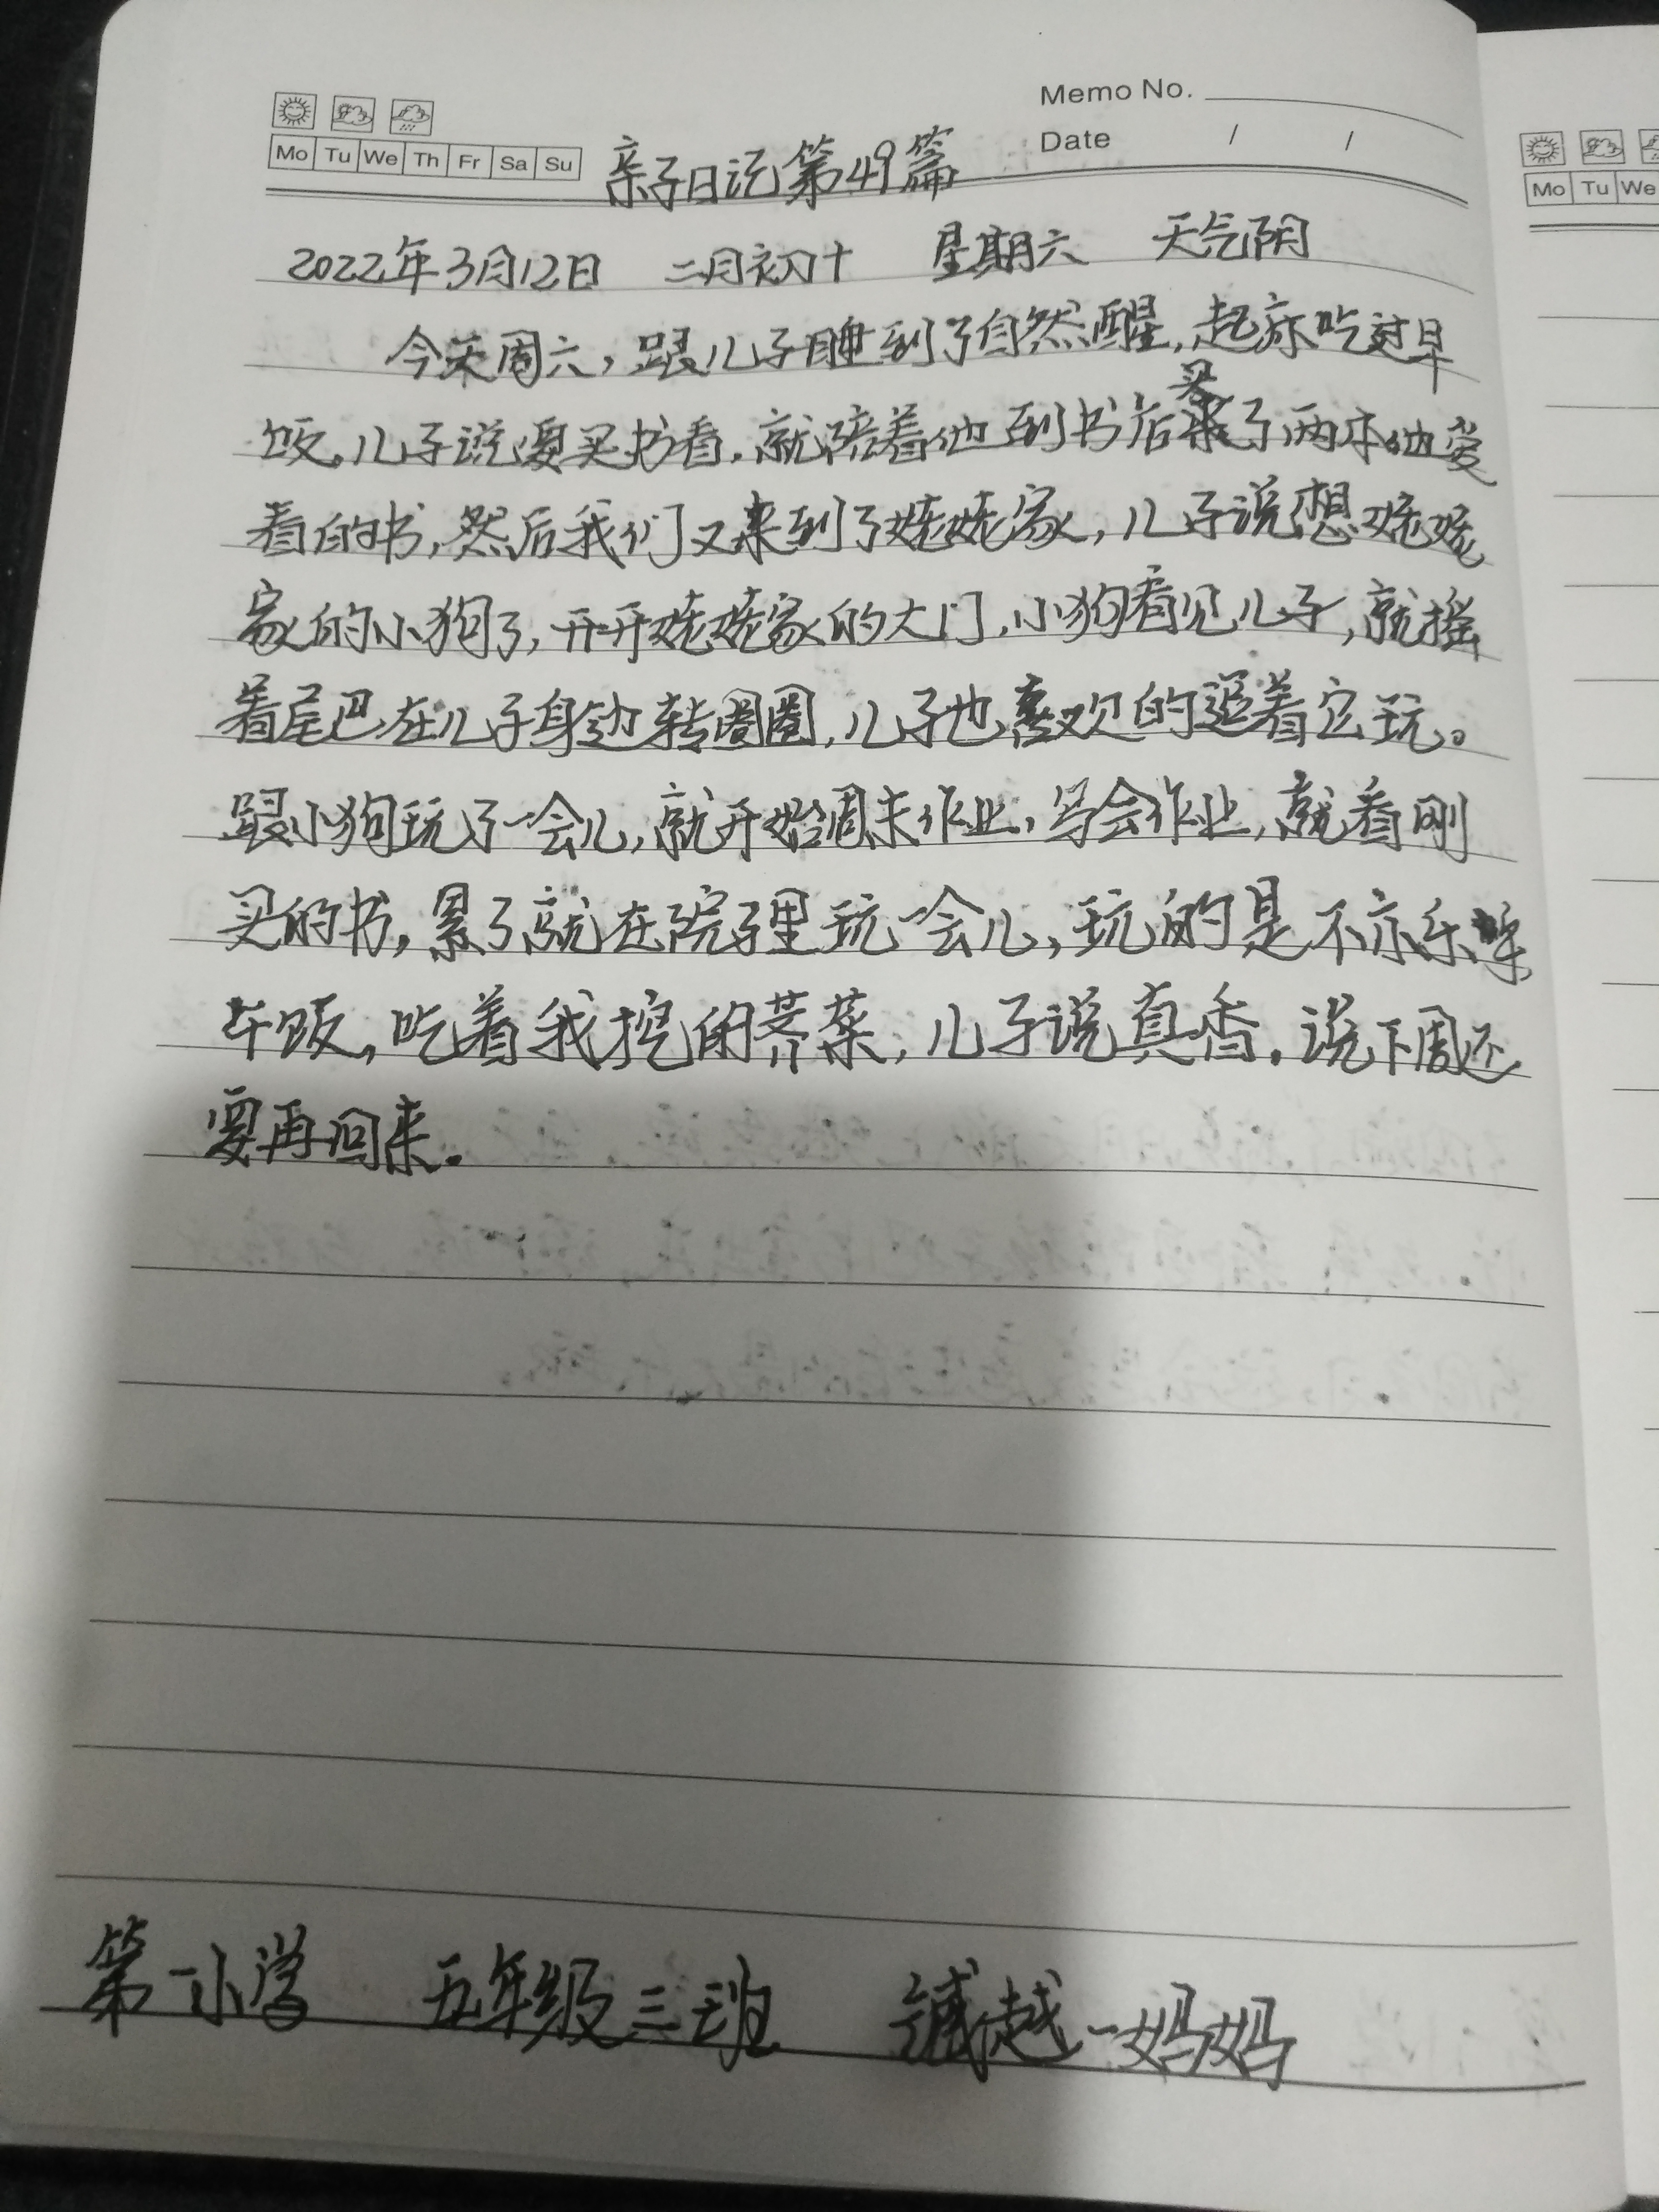 Memo No.
Mo Tu We Th Fr Sa Su
Date / /
亲子日记第49篇
2022年3月12日 二月初十 星期六 天气阴
今天周六，跟儿子睡到了自然醒，起床吃过早
饭。儿子说要买书看，就陪着他到书店买了两本他爱
看的书，然后我们又来到了姥姥家，儿子说想姥姥
家的小狗了，开开姥姥家的大门，小狗看见儿子，就摇
着尾巴在儿子身边转圈圈，儿子也喜欢的追着它玩。
跟小狗玩了一会儿，就开始周末作业，写会作业，就看刚
买的书，累了就在院子里玩一会儿，玩的是不亦乐乎，
午饭，吃着我挖的荠菜，儿子说真香。说下周还
要再回来。
第一小学 五年级三班 越一妈妈
Mo Tu We